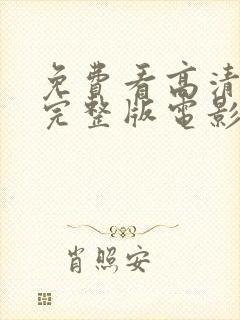 免費看高清
完整版電影
肖照安